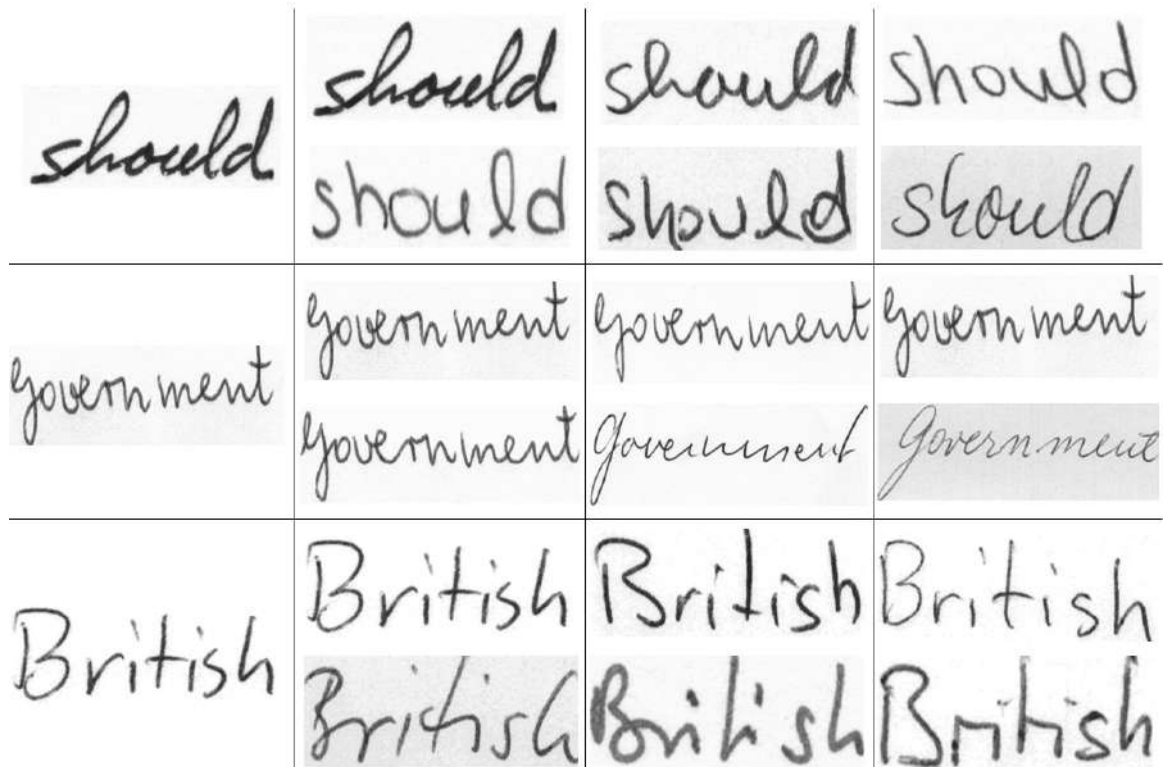 should should should
should
should should should
government government government
government
government government government
British British British
British
British British British